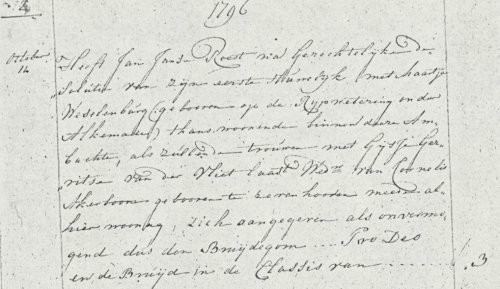 1796
4
October
14
Heeft Jan Janse Roest na Gerechtelijke de
solutie van zijn eerste Huwelijk met Maatje
Weselenburg (geboren op de Rypwetering onder
Alkemade) thans woonende binnen deese Am-
bachte, als zullende trouwen met Gysje Ger-
ritse van der Vliet laast Wed:e van Cornelis
Akerboom geboren te Zevenhooven meede al-
hier woonag, zich aangegeven als onvermo-
gend dus den Bruijdegom .... Pro Deo
en de Bruijd in de Classis van ........ 3